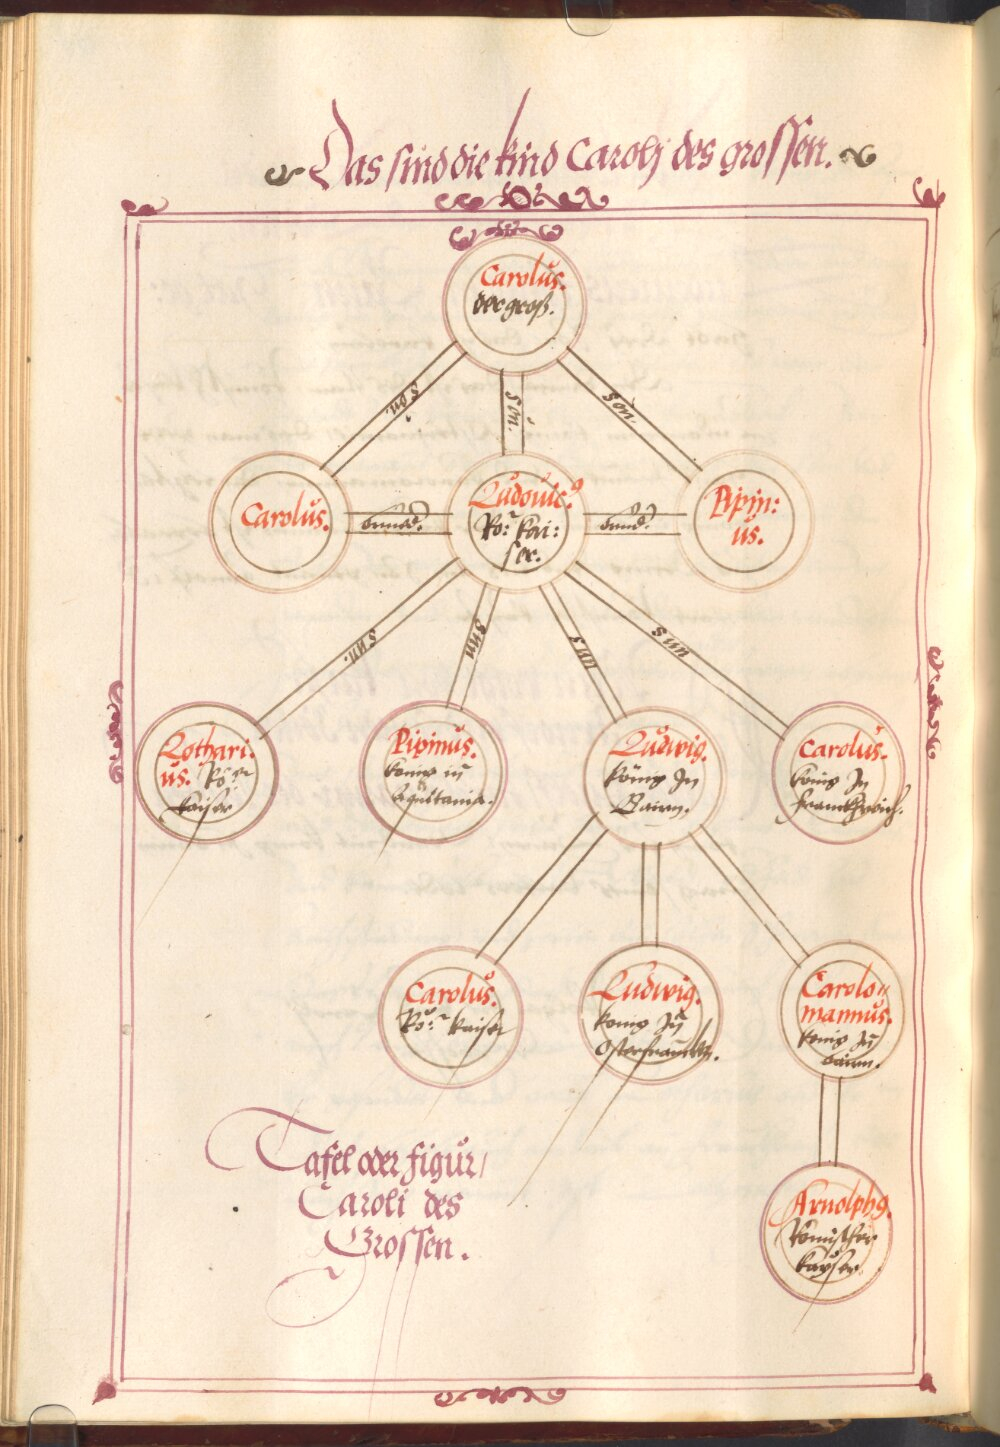 Das sind die kind Carolj des grossen.
Carolus.
der groß.
son.
son.
son.
Carolus.
brued?
Ludouic9
Ro: kai:
ser.
brud?
Pipin:
us.
sun.
sun
sun
sun
Lothari:
us. Ro:r
kaiser
Pipinus.
konig in
Aquitania.
Ludwig.
konig Jn
Bairn.
Carolus.
konig Jn
franckhreich.
Carolus.
Ro:r kaiser
Ludwig.
konig Jn
Osterfrancken.
Carolo„
mannus.
konig Jn
bairn.
Arnolph9.
Romischer
kayser.
Tafel oder figur/
Caroli des
Grossen.